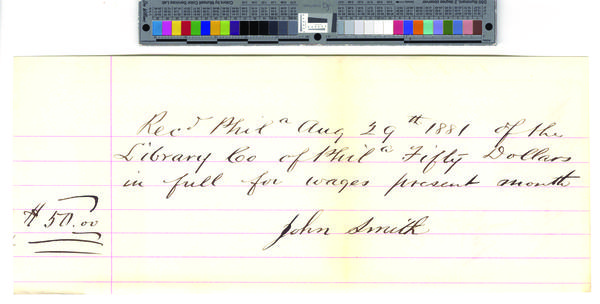 Rec'd Phil^a Aug 29^th 1881 of the
Library Co of Phil^a Fifty Dollars
in full for wages present month
$50.00
John Smith